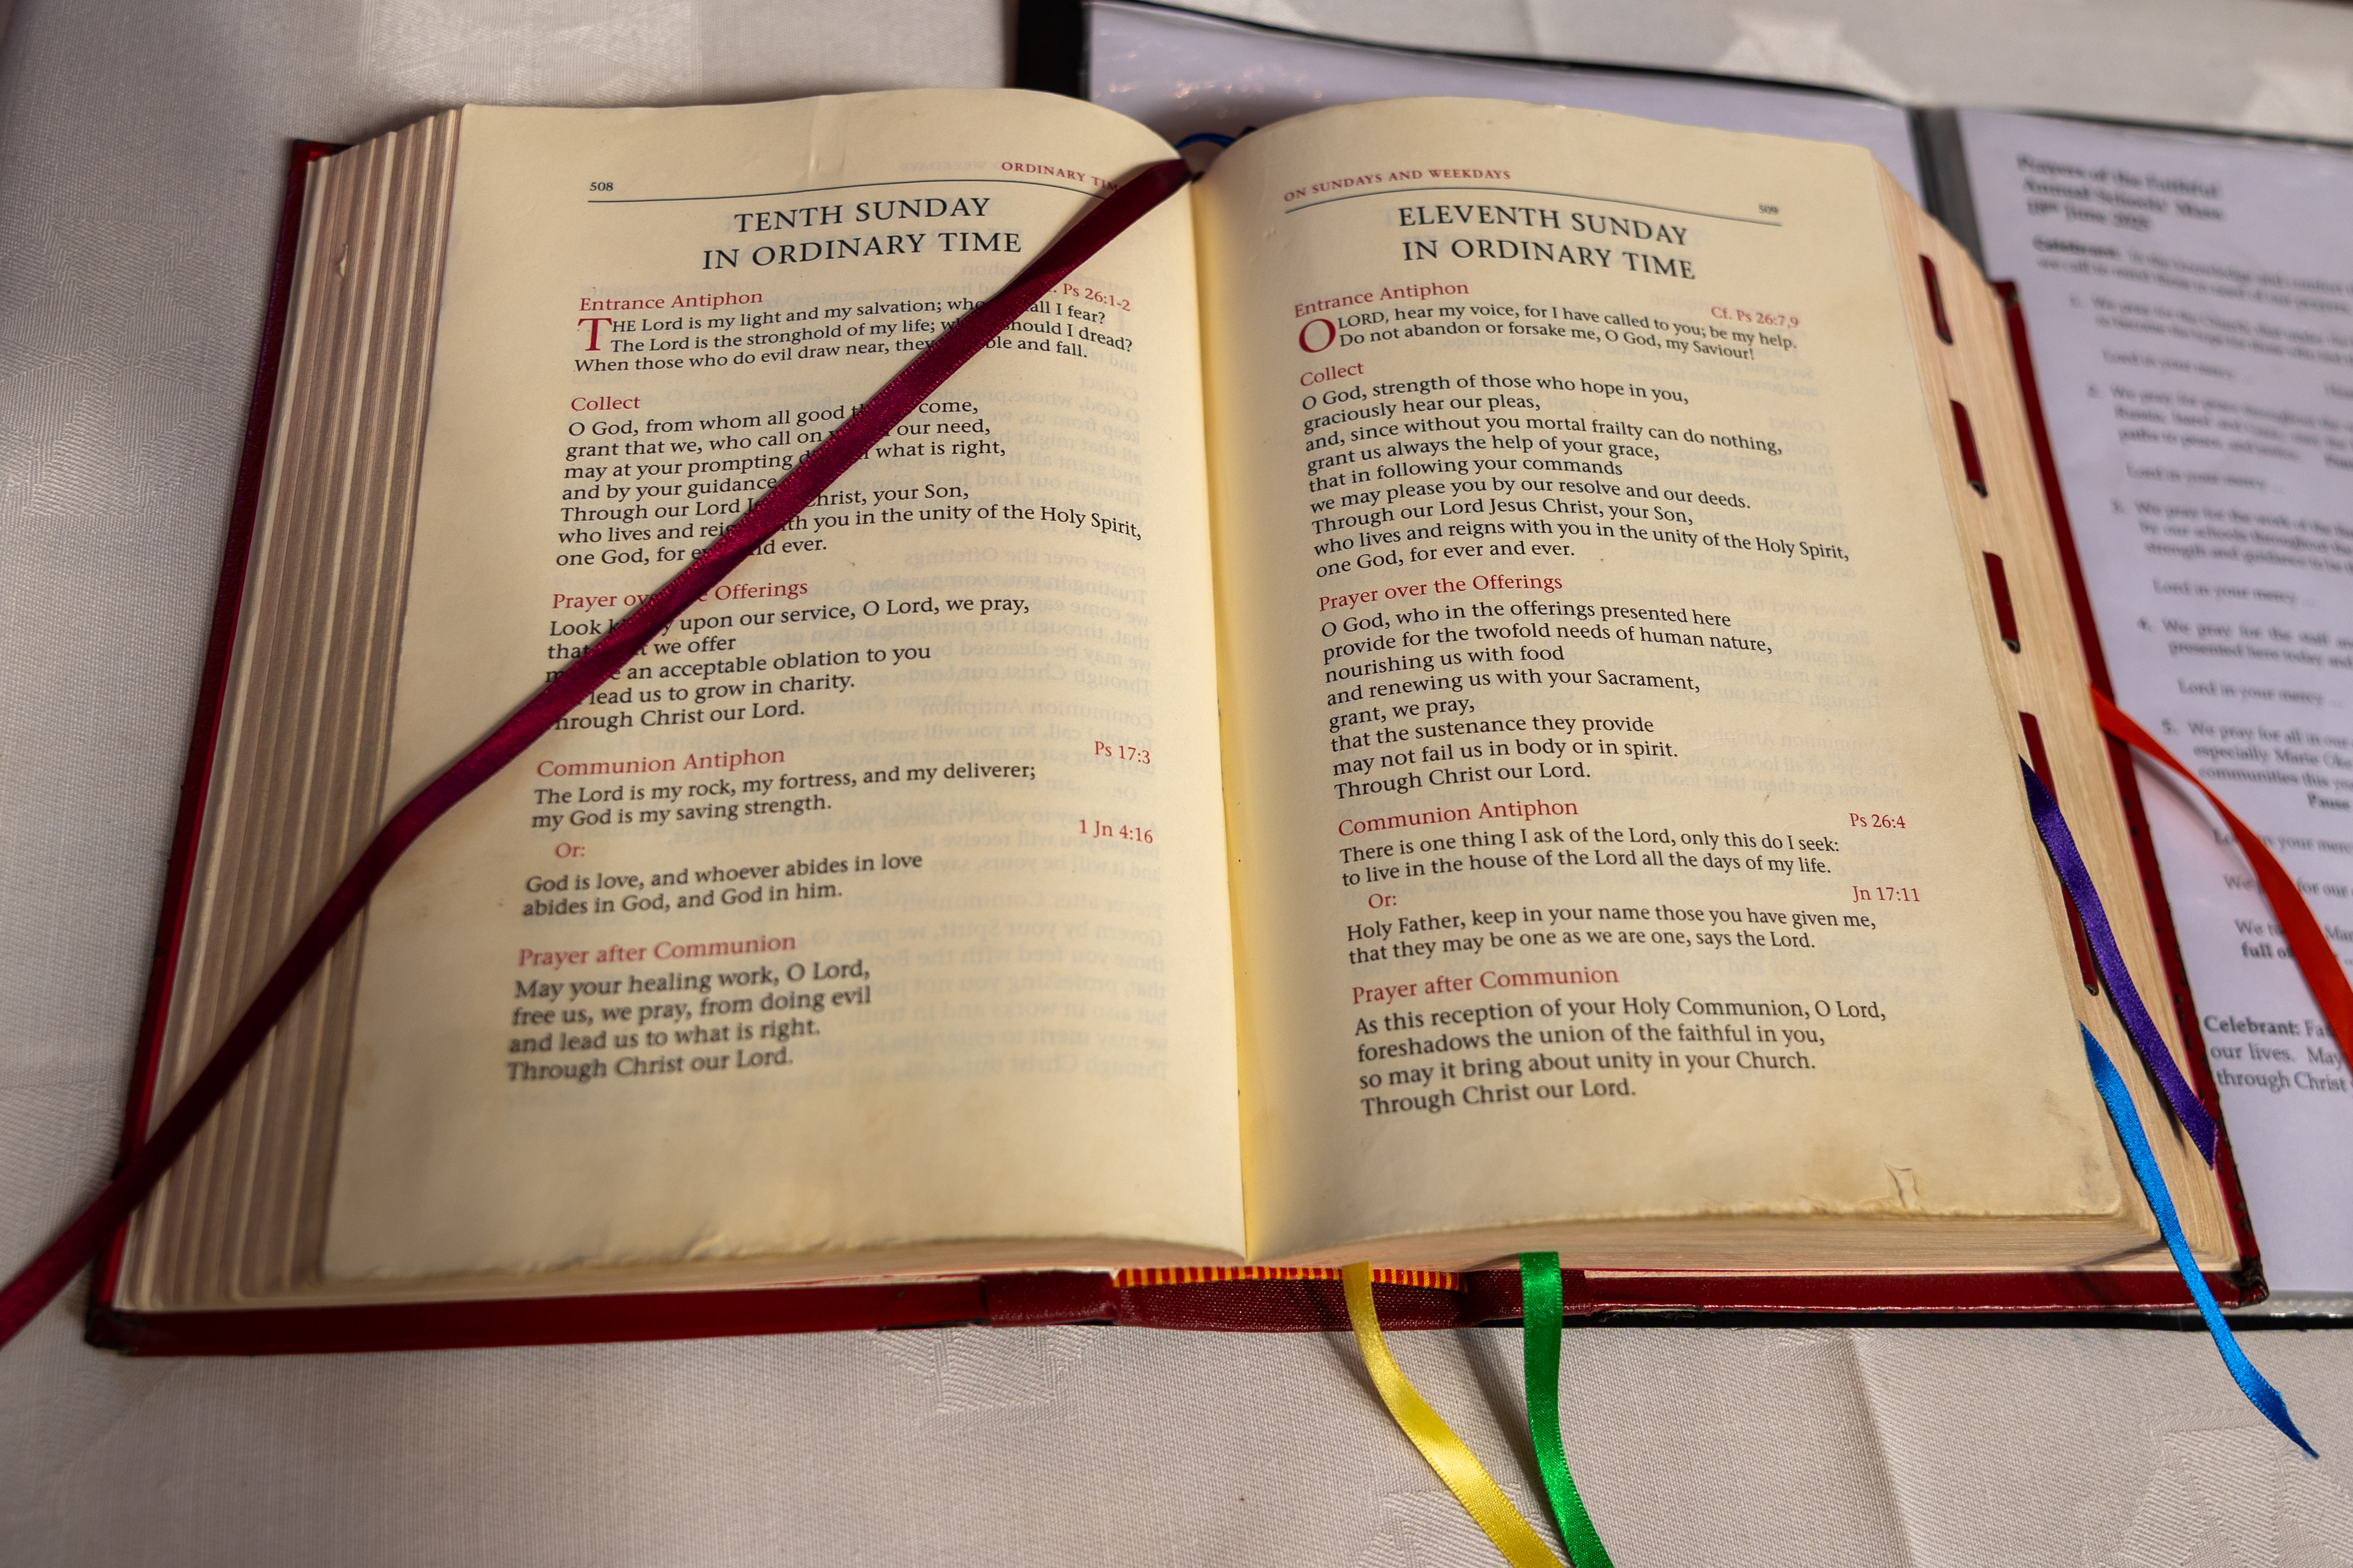 508
ORDINARY
TENTH SUNDAY
IN ORDINARY TIME
Entrance Antiphon
Ps 26:1-2
THE Lord is my light and my salvation; I fear?
The Lord is the stronghold of my life; should I dread?
When those who do evil draw near, and fall.
Collect
O God, from whom all good come,
grant that we, who call on our need,
may at your prompting what is right,
and by your guidance
Through our Lord Christ, your Son,
who lives and you in the unity of the Holy Spirit,
one God, for ever.
Prayer Offerings
Look upon our service, O Lord, we pray,
we offer
an acceptable oblation to you
lead us to grow in charity.
Through Christ our Lord.
Communion Antiphon
Ps 17:3
The Lord is my rock, my fortress, and my deliverer;
my God is my saving strength.
Or:
1 Jn 4:16
God is love, and whoever abides in love
abides in God, and God in him.
Prayer after Communion
May your healing work, O Lord,
free us, we pray, from doing evil
and lead us to what is right.
Through Christ our Lord.
ON SUNDAYS AND WEEKDAYS
509
ELEVENTH SUNDAY
IN ORDINARY TIME
Entrance Antiphon
Cf. Ps 26:7,9
O LORD, hear my voice, for I have called to you; be my help.
Do not abandon or forsake me, O God, my Saviour!
Collect
O God, strength of those who hope in you,
graciously hear our pleas,
and, since without you mortal frailty can do nothing,
grant us always the help of your grace,
that in following your commands
we may please you by our resolve and our deeds.
Through our Lord Jesus Christ, your Son,
who lives and reigns with you in the unity of the Holy Spirit,
one God, for ever and ever.
Prayer over the Offerings
O God, who in the offerings presented here
provide for the twofold needs of human nature,
nourishing us with food
and renewing us with your Sacrament,
grant, we pray,
that the sustenance they provide
may not fail us in body or in spirit.
Through Christ our Lord.
Communion Antiphon
Ps 26:4
There is one thing I ask of the Lord, only this do I seek:
to live in the house of the Lord all the days of my life.
Or:
Jn 17:11
Holy Father, keep in your name those you have given me,
that they may be one as we are one, says the Lord.
Prayer after Communion
As this reception of your Holy Communion, O Lord,
foreshadows the union of the faithful in you,
so may it bring about unity in your Church.
Through Christ our Lord.
Prayers of the Faithful
Annual Schools' Mass
June
Celebrant:
Lord in your mercy
Lord in your mercy ...
Lord in your mercy ...
4. We pray for the staff
presented here today and
Lord in your mercy ...
5. We pray for all in our
especially Marie
communities this
Pause
in your
We for our
We
full of
Celebrant:
our lives. May
through Christ